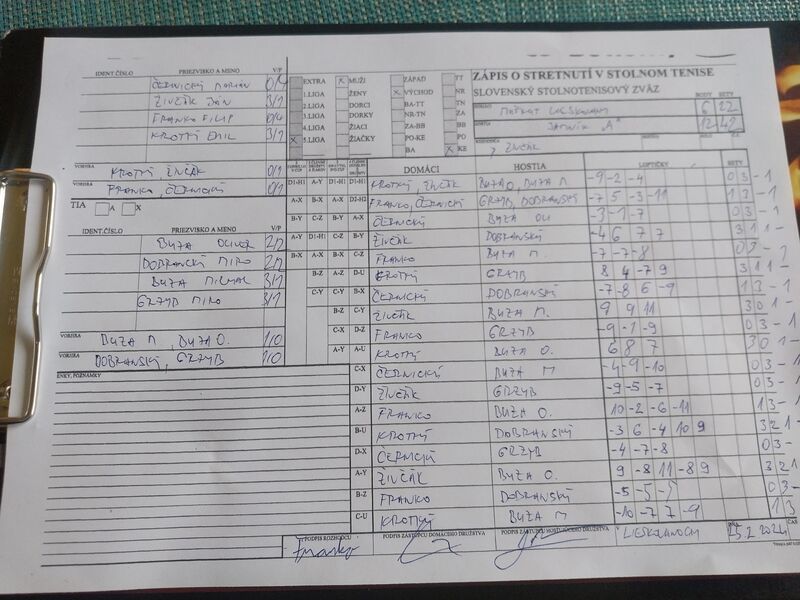 IDENT. ČÍSLO PRIEZVISKO A MENO V/P
ČERNICKÝ 0/4
ŽIVČÁK JÁN 3/1
FRANKO FILIP 0/4
KROTKÝ EMIL 3/1
EXTRA X MUŽI ZÁPAD TT
1.LIGA ŽENY X VÝCHOD NR
2.LIGA DORCI BA-TT TN
3.LIGA DORKY NR-TN ZA
4.LIGA ŽIACI ZA-BB BB
X 5.LIGA ŽIAČKY PO-KE PO
BA X KE
ZÁPIS O STRETNUTÍ V STOLNOM TENISE
SLOVENSKÝ STOLNOTENISOVÝ ZVÄZ
BODY SETY
6 22
"A" 12 42
ŽIVČÁK
VO HRA KROTKÝ, ŽIVČÁK 0/1
FRANKO, ČERNICKÝ 0/1
TIA A X
IDENT.ČÍSLO PRIEZVISKO A MENO V/P
BUZA OLIVER 2/2
DOBRANSKÝ MIRO 2/2
BUZA MICHAL 3/1
GRZYB MIRO 3/1
BUZA M, BUZA O. 1/0
DOBRANSKÝ, GRZYB 1/0
ENKY, POZNÁMKY
DOMÁCI HOSTIA LOPTIČKY SETY
KROTKÝ, ŽIVČÁK BUZA O, BUZA M -9 -2 -4 0 3 -1
FRANKO, ČERNICKÝ GRZYB, DOBRANSKÝ -7 5 -3 -11 1 3 -1
ČERNICKÝ BUZA OLI -3 -1 -7 0 3 -1
ŽIVČÁK DOBRANSKÝ -4 6 7 7 3 1 1 -
FRANKO BUZA M. -7 -7 -8 0 3 -
KROTKÝ GRZYB 8 4 -7 9 3 1 1 -
ČERNICKÝ DOBRANSKÝ -7 -8 6 -9 1 3 -1
ŽIVČÁK BUZA M. 9 9 11 3 0 1 -
FRANKO GRZYB -9 -1 -9 0 3 -1
KROTKÝ BUZA O. 6 8 7 3 0 1
C-X ČERNICKÝ BUZA M -4 -9 -10 0 3 -
D-Y ŽIVČÁK GRZYB -9 -5 -7 0 3 -
A-Z FRANKO BUZA O. 10 -2 -6 -11 1 3 -
B-U KROTKÝ DOBRANSKÝ -3 6 -4 10 9 3 2 1
D-X ČERNICKÝ GRZYB -4 -7 -8 0 3 -
A-Y ŽIVČÁK BUZA O. 9 -8 11 -8 9 3 2 1
B-Z FRANKO DOBRANSKÝ -5 -5 -5 0 3 -
C-U KROTKÝ BUZA M -10 -7 7 -9 1 3
PODPIS ROZHODCU PODPIS ZÁSTUPCU DOMÁCEHO DRUŽSTVA PODPIS ZÁSTUPCU HOSŤUJÚCEHO DRUŽSTVA DŇA ČAS
Franko 25.2.2024